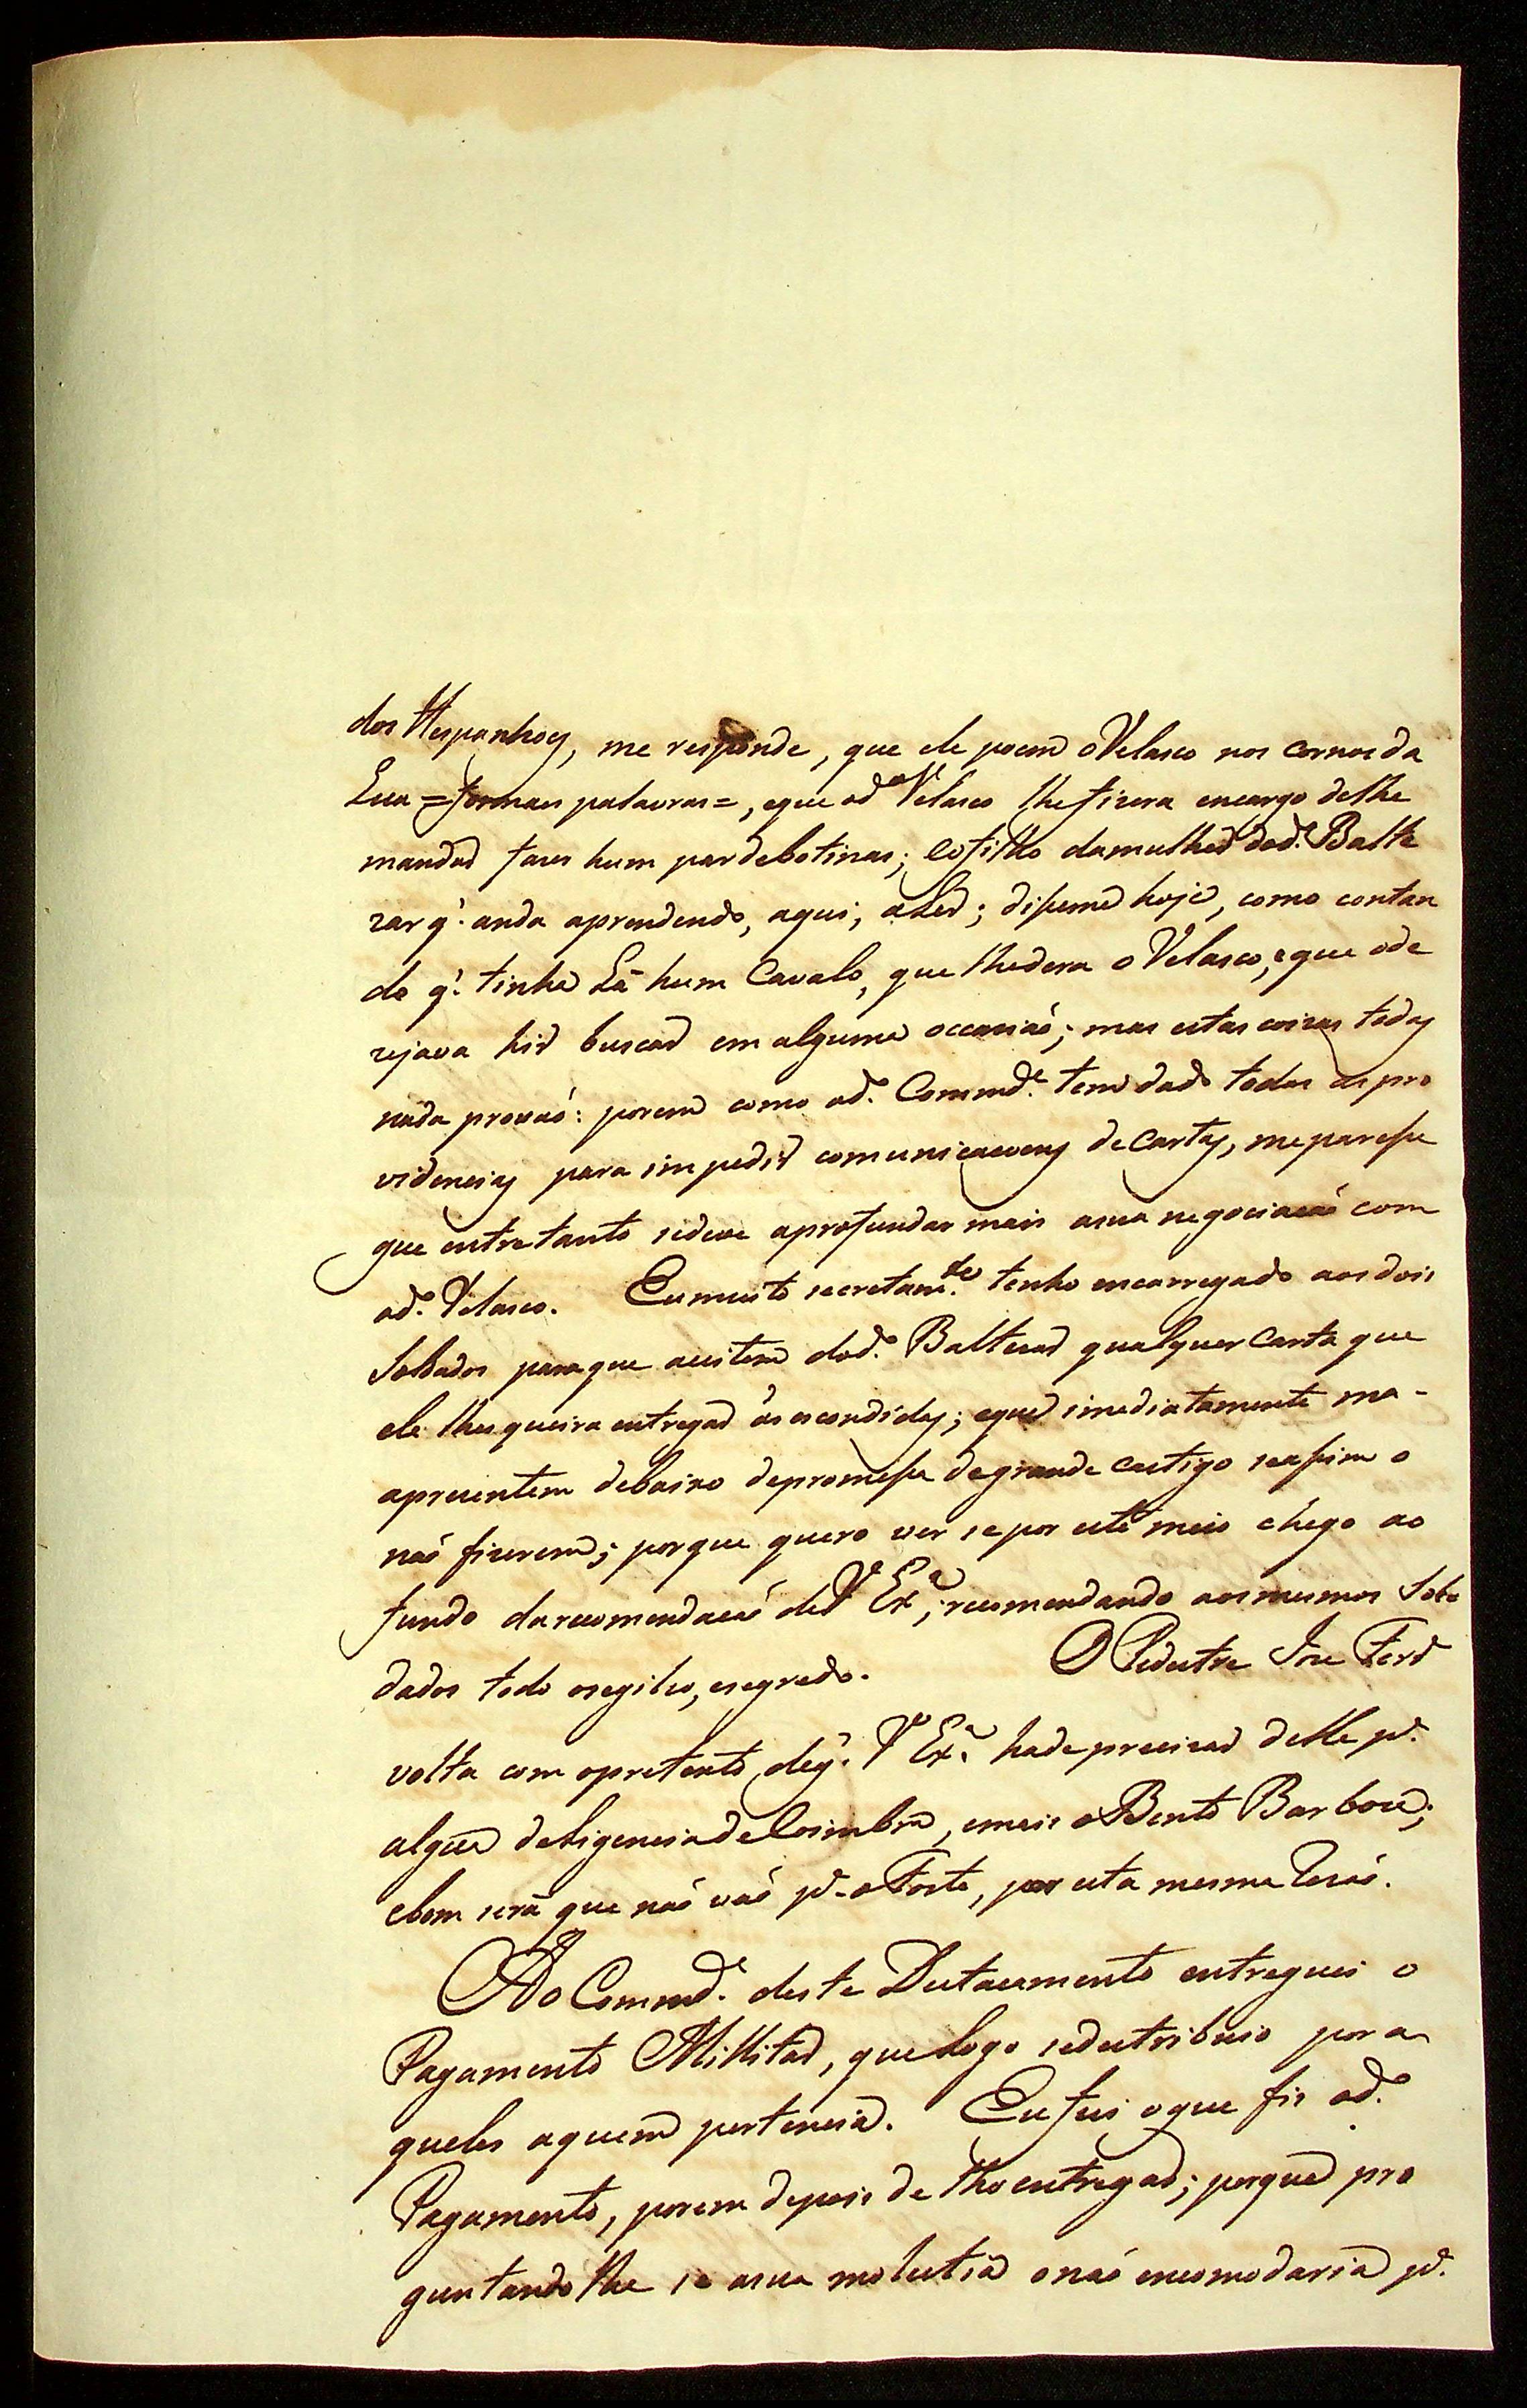 dos Hespanhoes, me responde, que ele poem o Velasco nos cornos da
Lua = formais palavras =, e que o d.º Velasco lhe fizera encargo de lhe
mandar fazer hum par de botinas; e o filho da mulher do d.º Balte
zar q.' anda aprendendo, aqui, a Ler; dipeme hoje, como contan
do q.' tinha Lá hum Cavalo, que lhe dera o Velasco, e que o de
zejava hir buscar em alguma occaziaõ; mas estas coizas todas
nada provaõ: porem como o d.º Commd.e tem dado todas as pro
videncias para impedir comunicacoens de Cartas, me parese
que entretanto se deve aprofundar mais a sua negociacaõ com
o d.º Velasco. Eu muito secretam.te tenho encarregado aos dois
Soldados para que aceitem do d.º Baltezar qualquer Carta que
ele lhes queira entregar ás escondidas; e que imediatamente ma-
aprezentem debaixo de promesa de grande castigo se assim o
naõ fizerem; porque quero ver se por este meio chego ao
fundo da recomendacaõ de V Ex.ª, recomendando aos mesmos Sol
dados todo o segilio, e segredo. O Pedestre Joze Ferr
volta com o pretexto, de q.' V Ex.ª hade precizar delle p.ª
algũa deligencia de Coimbra, e mais o Bento Barboza;
e bom será que naõ vaõ p.ª o Forte, por esta mesma Rezaõ.
Ao Commd.e deste Destacamento entreguei o
Pagamento Millitar, que logo se destribuio por a
queles a quem pertencia. Eu fui o que fiz o d.º
Pagamento, porem depois de lho entregar; porque pre
guntando lhe se a sua molestia o naõ encomodaria p.ª